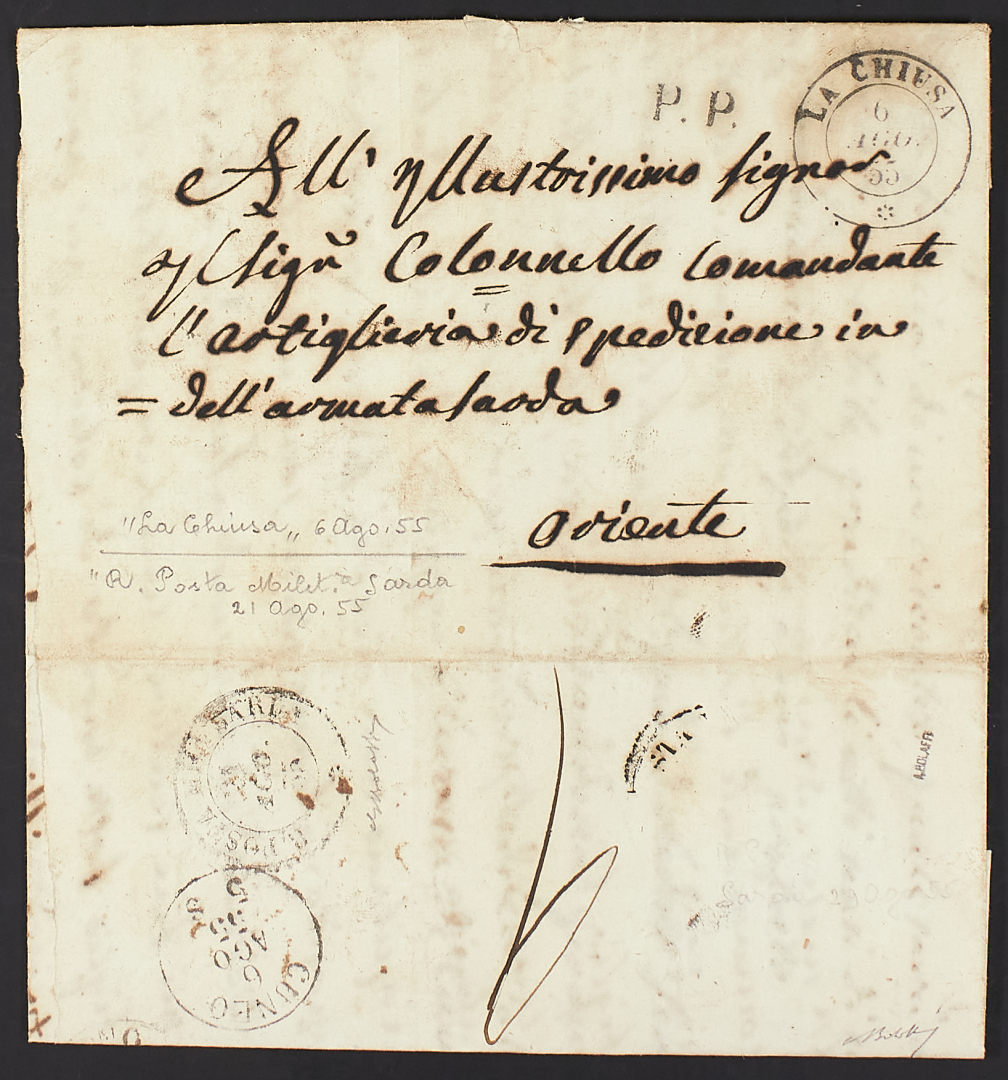 P. P.
LA CHIUSA
6
AGO.
55
All' Yllustrissimo signor
Yl sigʳ Colonnello Comandante
l'artiglieria di spedizione in
= dell'armata sarda
Oriente
"La Chiusa„ 6 Ago. 55
"R. Posta Milit.ª Sarda
21 Ago. 55
SARDA
R. POSTA
21
AGO.
55
A.BOLAFFI
CUNEO
6
AGO
55